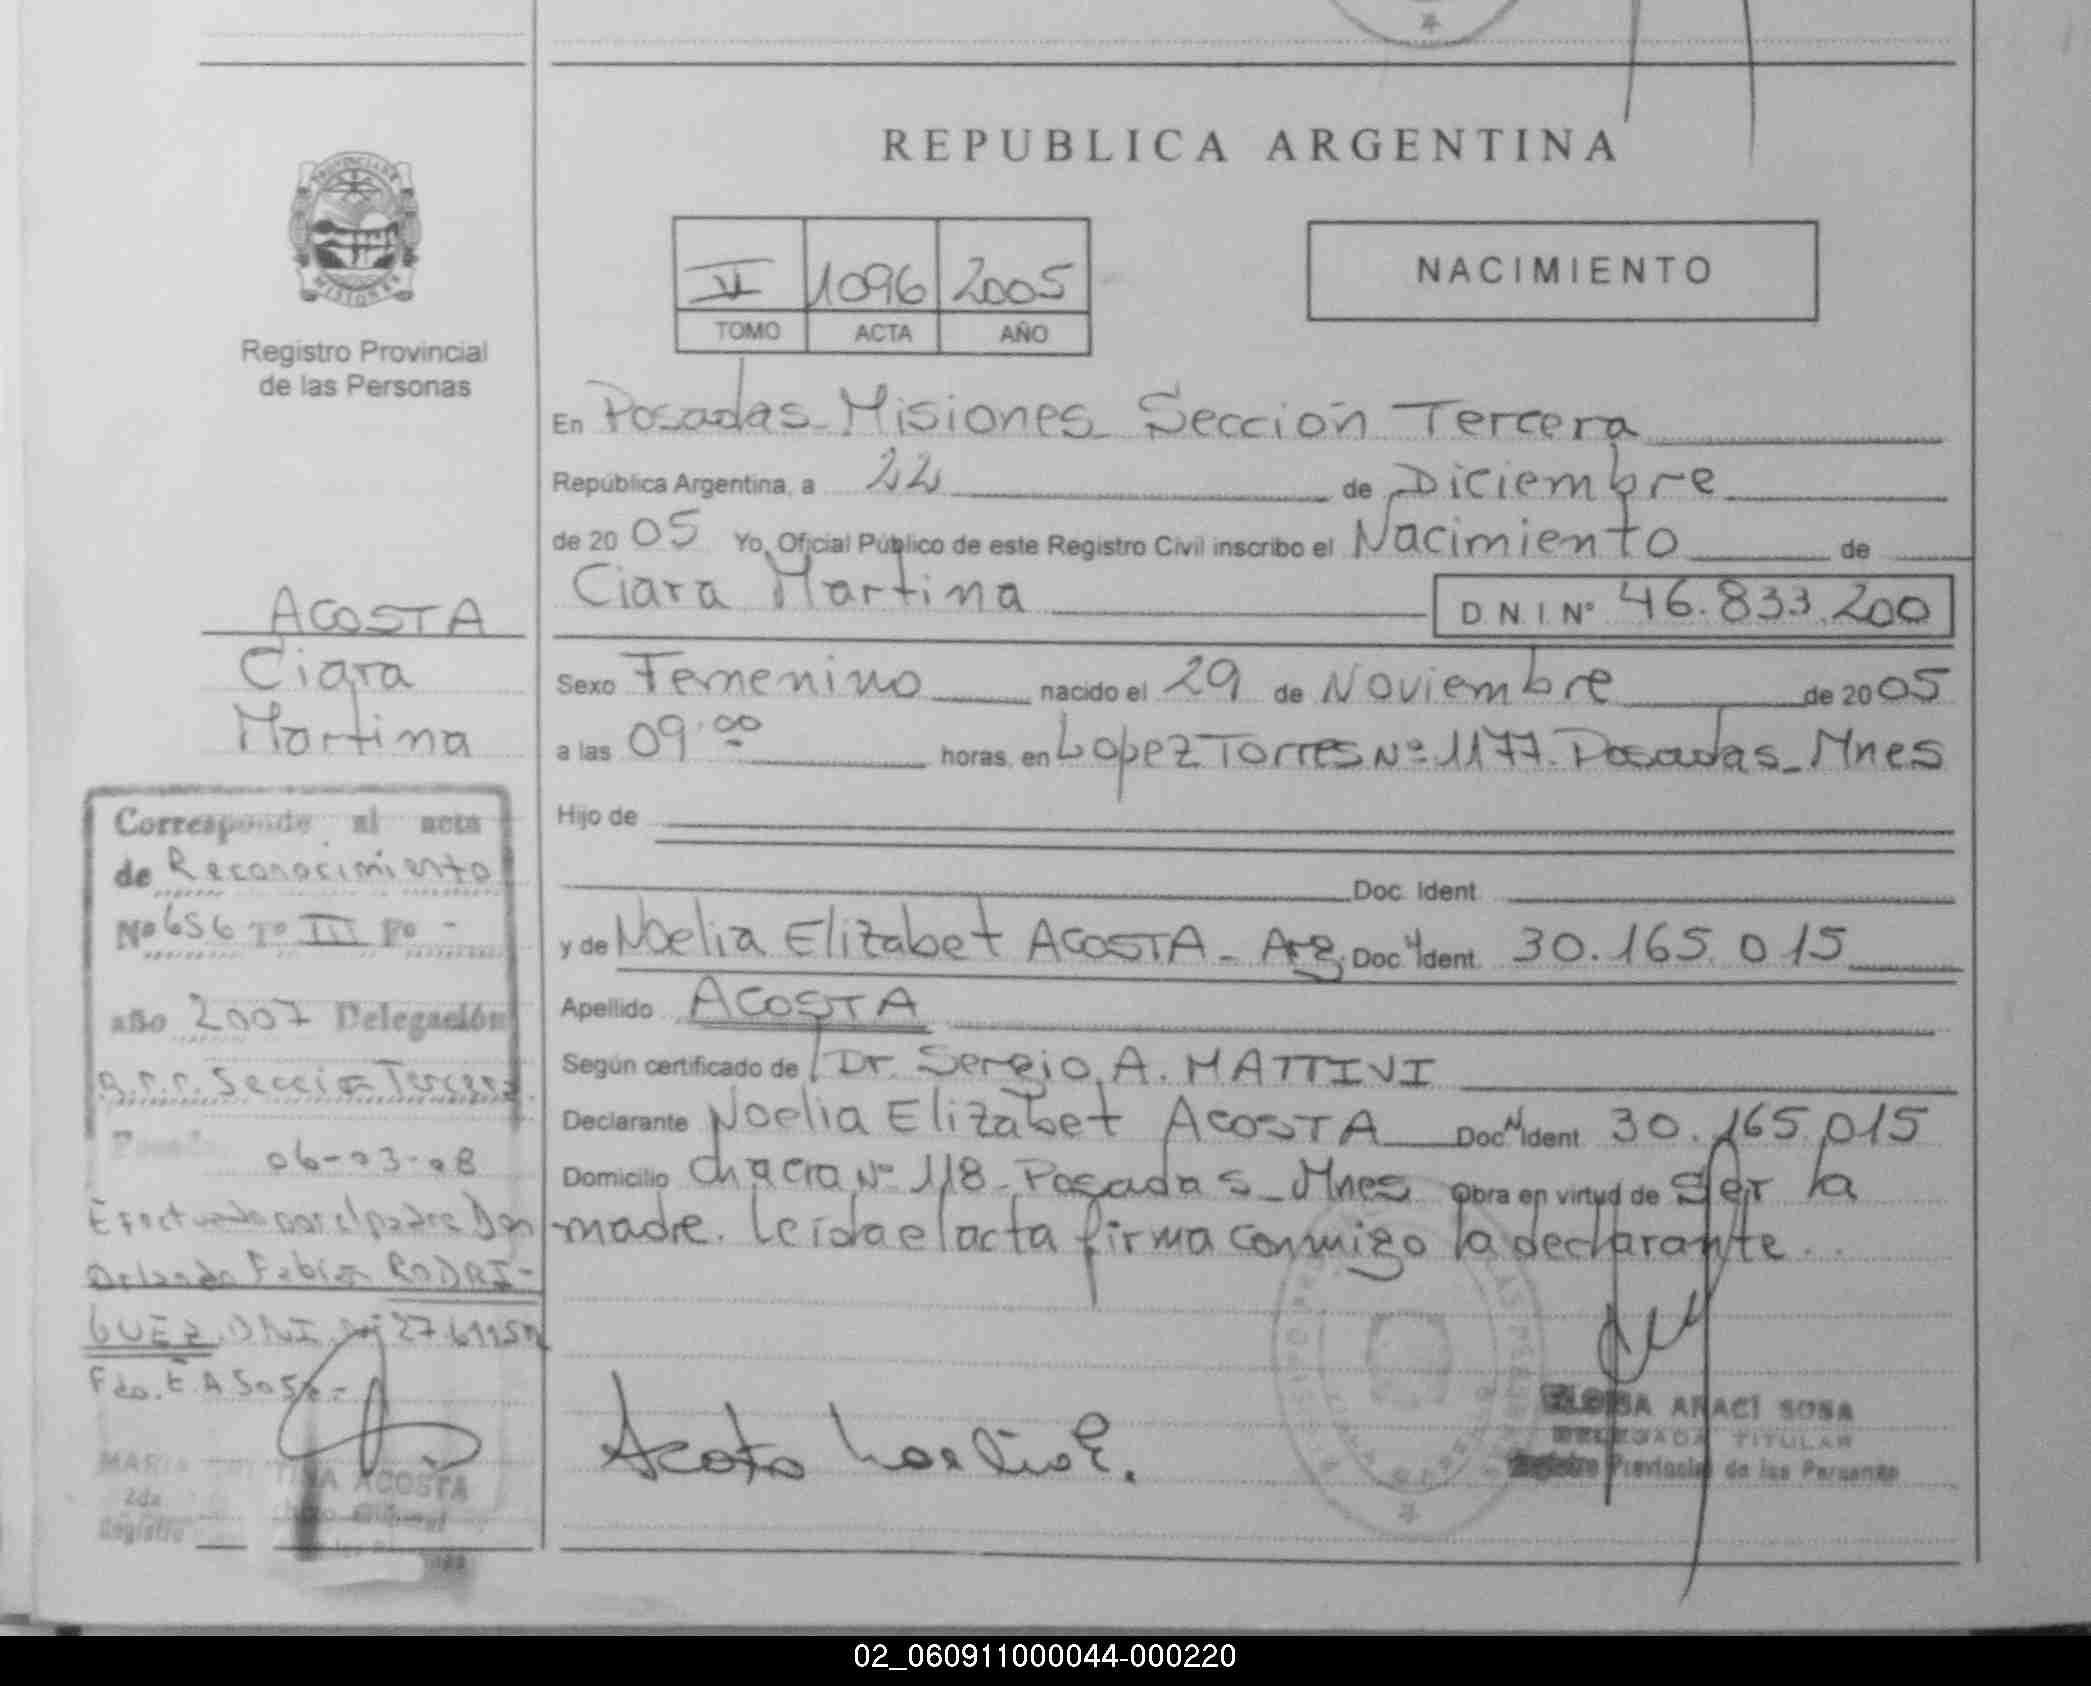 REPUBLICA ARGENTINA
PROVINCIA DE
MISIONES
Registro Provincial
de las Personas
VI 1096 2005
TOMO ACTA AÑO
NACIMIENTO
En Posadas_Misiones_Sección Tercera
República Argentina, a 22 de Diciembre
de 20 05 Yo, Oficial Público de este Registro Civil inscribo el Nacimiento de
Ciara Martina D.N.I. Nº 46.833.200
Sexo Femenino nacido el 29 de Noviembre de 20 05
a las 09:00 horas, en Lopez Torres Nº 1177. Posadas_Mnes
Hijo de
Doc. Ident.
y de Noelia Elizabet ACOSTA_Arg. Doc. Ident. 30.165.015
Apellido ACOSTA
Según certificado de Dr. Sergio A. MATTIVI
Declarante Noelia Elizabet ACOSTA Doc. Ident. 30.165.015
Domicilio Chacra Nº 118_Posadas_Mnes Obra en virtud de Ser la
madre. Leída el acta firma conmigo la declarante.
Acosta Noelia E.
ELOISA ARACÍ SOSA
DELEGADA TITULAR
Registro Provincial de las Personas
ACOSTA
Ciara
Martina
Corresponde al acta
de Reconocimiento
Nº 656 Tº III Fº -
año 2007 Delegación
Sección Tercera
06-03-08
Efectuado por el padre Don
Orlando Fabian RODRI-
GUEZ DNI
Fdo. E. A Sosa
MARIA ACOSTA
2da
Registro
02_060911000044-000220